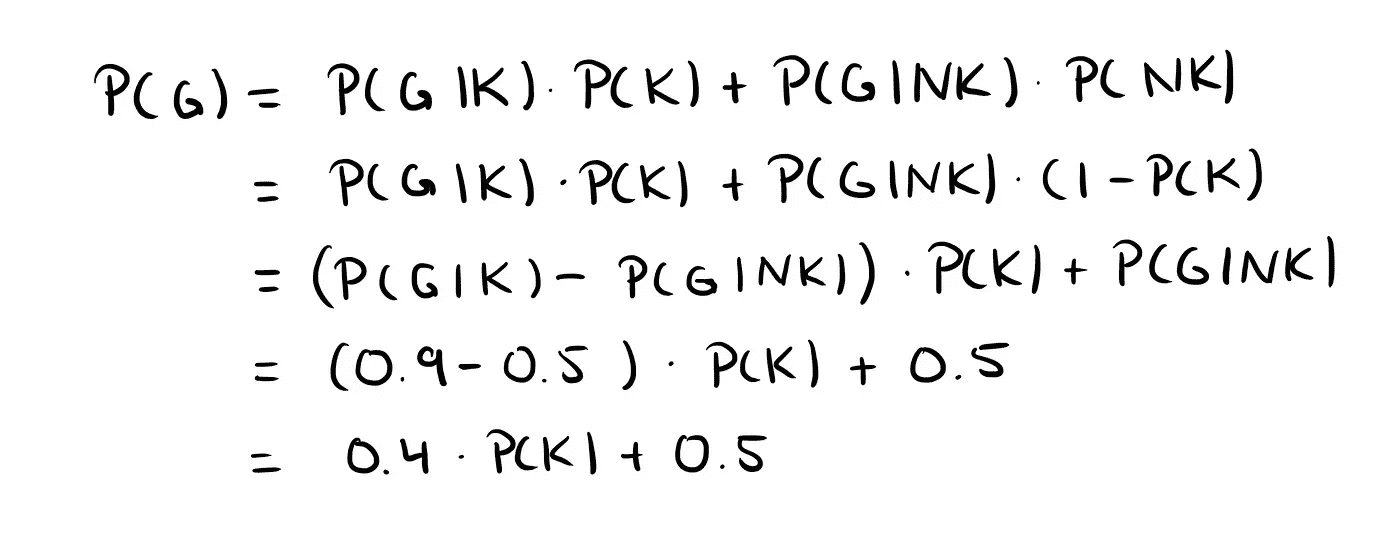 P(G) = P(G|K) · P(K) + P(G|NK) · P(NK)
= P(G|K) · P(K) + P(G|NK) · (1 - P(K)
= (P(G|K) - P(G|NK)) · P(K) + P(G|NK)
= (0.9 - 0.5) · P(K) + 0.5
= 0.4 · P(K) + 0.5